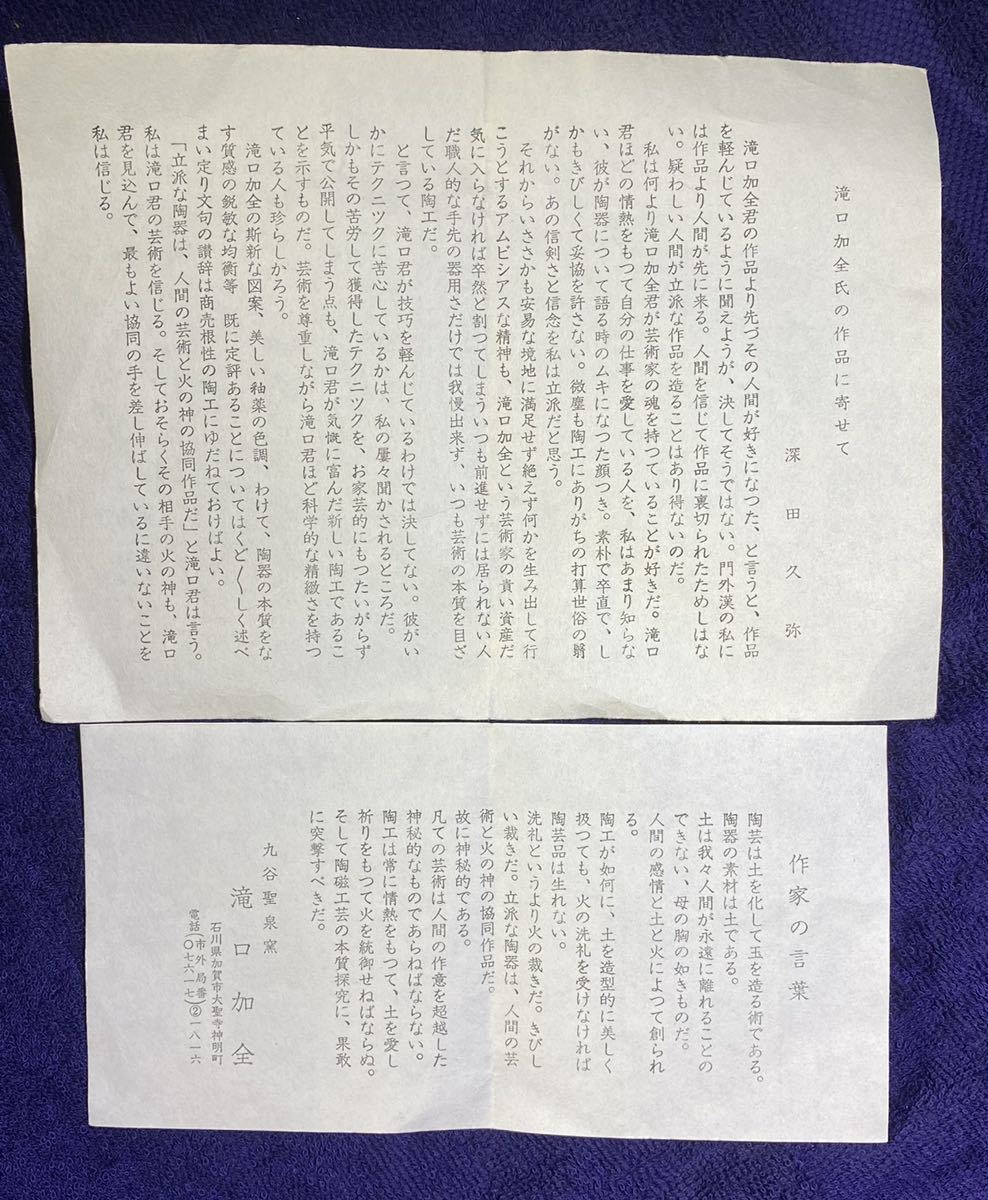 滝口加全氏の作品に寄せて
深田久弥
滝口加全君の作品より先づその人間が好きになつた、と言うと、作品
を軽んじているように聞えようが、決してそうではない。門外漢の私に
は作品より人間が先に来る。人間を信じて作品に裏切られたためしはな
い。疑わしい人間が立派な作品を造ることはあり得ないのだ。
私は何より滝口加全君が芸術家の魂を持つていることが好きだ。滝口
君ほどの情熱をもつて自分の仕事を愛している人を、私はあまり知らな
い、彼が陶器について語る時のムキになつた顔つき。素朴で卒直で、し
かもきびしくて妥協を許さない。微塵も陶工にありがちの打算世俗の翳
がない。あの信剣さと信念を私は立派だと思う。
それからいささかも安易な境地に満足せず絶えず何かを生み出して行
こうとするアムビシアスな精神も、滝口加全という芸術家の貴い資産だ
気に入らなければ卒然と割つてしまういつも前進せずには居られない人
だ職人的な手先の器用さだけでは我慢出来ず、いつも芸術の本質を目ざ
している陶工だ。
と言つて、滝口君が技巧を軽んじているわけでは決してない。彼がい
かにテクニツクに苦心しているかは、私の屢々聞かされるところだ。
しかもその苦労して獲得したテクニツクを、お家芸的にもつたいがらず
平気で公開してしまう点も、滝口君が気慨に富んだ新しい陶工であるこ
とを示すものだ。芸術を尊重しながら滝口君ほど科学的な精緻さを持つ
ている人も珍らしかろう。
滝口加全の斯新な図案、美しい釉薬の色調、わけて、陶器の本質をな
す質感の鋭敏な均衡等 既に定評あることについてはくど〳〵しく述べ
まい定り文句の讃辞は商売根性の陶工にゆだねておけばよい。
「立派な陶器は、人間の芸術と火の神の協同作品だ」と滝口君は言う。
私は滝口君の芸術を信じる。そしておそらくその相手の火の神も、滝口
君を見込んで、最もよい協同の手を差し伸ばしているに違いないことを
私は信じる。
作家の言葉
陶芸は土を化して玉を造る術である。
陶器の素材は土である。
土は我々人間が永遠に離れることの
できない、母の胸の如きものだ。
人間の感情と土と火によつて創られ
る。
陶工が如何に、土を造型的に美しく
扱つても、火の洗礼を受けなければ
陶芸品は生れない。
洗礼というより火の裁きだ。きびし
い裁きだ。立派な陶器は、人間の芸
術と火の神の協同作品だ。
故に神秘的である。
凡ての芸術は人間の作意を超越した
神秘的なものであらねばならない。
陶工は常に情熱をもつて、土を愛し
祈りをもつて火を統御せねばならぬ。
そして陶磁工芸の本質探究に、果敢
に突撃すべきだ。
九谷聖泉窯
滝口加全
石川県加賀市大聖寺神明町
電話(市外局番〇七六一七)②一八一六